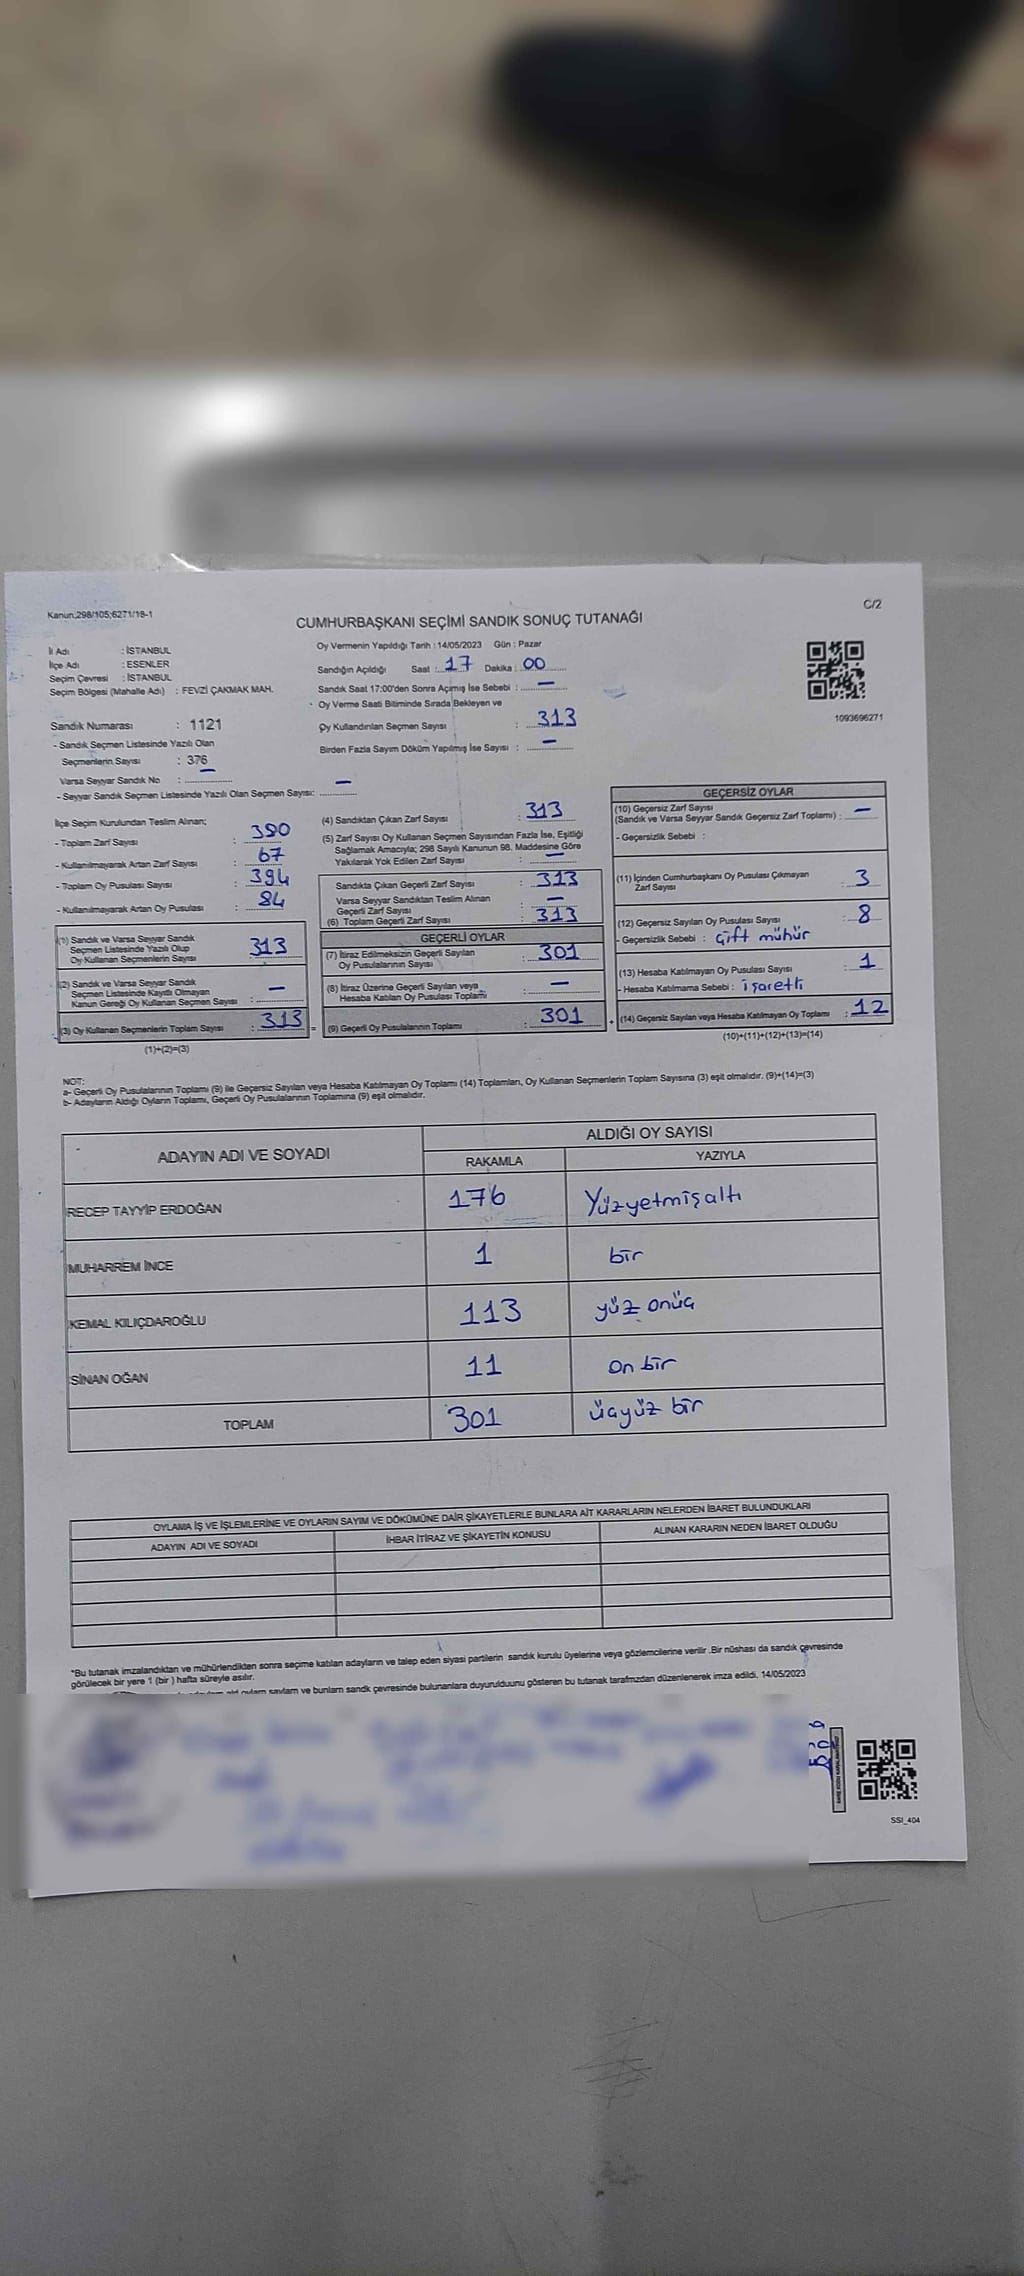 Kanun:298/105;6271/18-1
C/2
CUMHURBAŞKANI SEÇİMİ SANDIK SONUÇ TUTANAĞI
İl Adı : İSTANBUL
İlçe Adı : ESENLER
Seçim Çevresi : İSTANBUL
Seçim Bölgesi (Mahalle Adı) : FEVZİ ÇAKMAK MAH.
Sandık Numarası : 1121
- Sandık Seçmen Listesinde Yazılı Olan
Seçmenlerin Sayısı : 376
Varsa Seyyar Sandık No : —
- Seyyar Sandık Seçmen Listesinde Yazılı Olan Seçmen Sayısı: —
Oy Vermenin Yapıldığı Tarih : 14/05/2023 Gün : Pazar
Sandığın Açıldığı Saat : 17 Dakika : 00
Sandık Saat 17:00'den Sonra Açımış İse Sebebi : —
Oy Verme Saati Bitiminde Sırada Bekleyen ve
Oy Kullandırılan Seçmen Sayısı : 313
Birden Fazla Sayım Döküm Yapılmış İse Sayısı : —
1093696271
İlçe Seçim Kurulundan Teslim Alınan;
- Toplam Zarf Sayısı : 380
- Kullanılmayarak Artan Zarf Sayısı : 67
- Toplam Oy Pusulası Sayısı : 394
- Kullanılmayarak Artan Oy Pusulası : 84
(1) Sandık ve Varsa Seyyar Sandık
Seçmen Listesinde Yazılı Olup
Oy Kullanan Seçmenlerin Sayısı : 313
(2) Sandık ve Varsa Seyyar Sandık
Seçmen Listesinde Kayıtlı Olmayan
Kanun Gereği Oy Kullanan Seçmen Sayısı : —
(3) Oy Kullanan Seçmenlerin Toplam Sayısı : 313
(1)+(2)=(3)
(4) Sandıktan Çıkan Zarf Sayısı : 313
(5) Zarf Sayısı Oy Kullanan Seçmen Sayısından Fazla İse, Eşitliği
Sağlamak Amacıyla; 298 Sayılı Kanunun 98. Maddesine Göre
Yakılarak Yok Edilen Zarf Sayısı : —
Sandıkta Çıkan Geçerli Zarf Sayısı : 313
Varsa Seyyar Sandıktan Teslim Alınan
Geçerli Zarf Sayısı : —
(6) Toplam Geçerli Zarf Sayısı : 313
GEÇERLİ OYLAR
(7) İtiraz Edilmeksizin Geçerli Sayılan
Oy Pusulalarının Sayısı : 301
(8) İtiraz Üzerine Geçerli Sayılan veya
Hesaba Katılan Oy Pusulası Toplamı : —
(9) Geçerli Oy Pusulalarının Toplamı : 301
GEÇERSİZ OYLAR
(10) Geçersiz Zarf Sayısı
(Sandık ve Varsa Seyyar Sandık Geçersiz Zarf Toplamı) : —
- Geçersizlik Sebebi :
(11) İçinden Cumhurbaşkanı Oy Pusulası Çıkmayan
Zarf Sayısı : 3
(12) Geçersiz Sayılan Oy Pusulası Sayısı : 8
- Geçersizlik Sebebi : Çift mühür
(13) Hesaba Katılmayan Oy Pusulası Sayısı : 1
- Hesaba Katılmama Sebebi : işaretli
(14) Geçersiz Sayılan veya Hesaba Katılmayan Oy Toplamı : 12
(10)+(11)+(12)+(13)=(14)
NOT:
a- Geçerli Oy Pusulalarının Toplamı (9) ile Geçersiz Sayılan veya Hesaba Katılmayan Oy Toplamı (14) Toplamları, Oy Kullanan Seçmenlerin Toplam Sayısına (3) eşit olmalıdır. (9)+(14)=(3)
b- Adayların Aldığı Oyların Toplamı, Geçerli Oy Pusulalarının Toplamına (9) eşit olmalıdır.
ADAYIN ADI VE SOYADI
ALDIĞI OY SAYISI
RAKAMLA YAZIYLA
RECEP TAYYİP ERDOĞAN 176 Yüzyetmişaltı
MUHARREM İNCE 1 bir
KEMAL KILIÇDAROĞLU 113 yüz onüç
SİNAN OĞAN 11 on bir
TOPLAM 301 üçyüz bir
OYLAMA İŞ VE İŞLEMLERİNE VE OYLARIN SAYIM VE DÖKÜMÜNE DAİR ŞİKAYETLERLE BUNLARA AİT KARARLARIN NELERDEN İBARET BULUNDUKLARI
ADAYIN ADI VE SOYADI İHBAR İTİRAZ VE ŞİKAYETİN KONUSU ALINAN KARARIN NEDEN İBARET OLDUĞU
*Bu tutanak imzalandıktan ve mühürlendikten sonra seçime katılan adayların ve talep eden siyasi partilerin sandık kurulu üyelerine veya gözlemcilerine verilir .Bir nüshası da sandık çevresinde
görülecek bir yere 1 (bir ) hafta süreyle asılır.
ve bunların sandık çevresinde bulunanlara duyurulduunu gösteren bu tutanak tarafımızdan düzenlenerek imza edildi. 14/05/2023
SSI_404